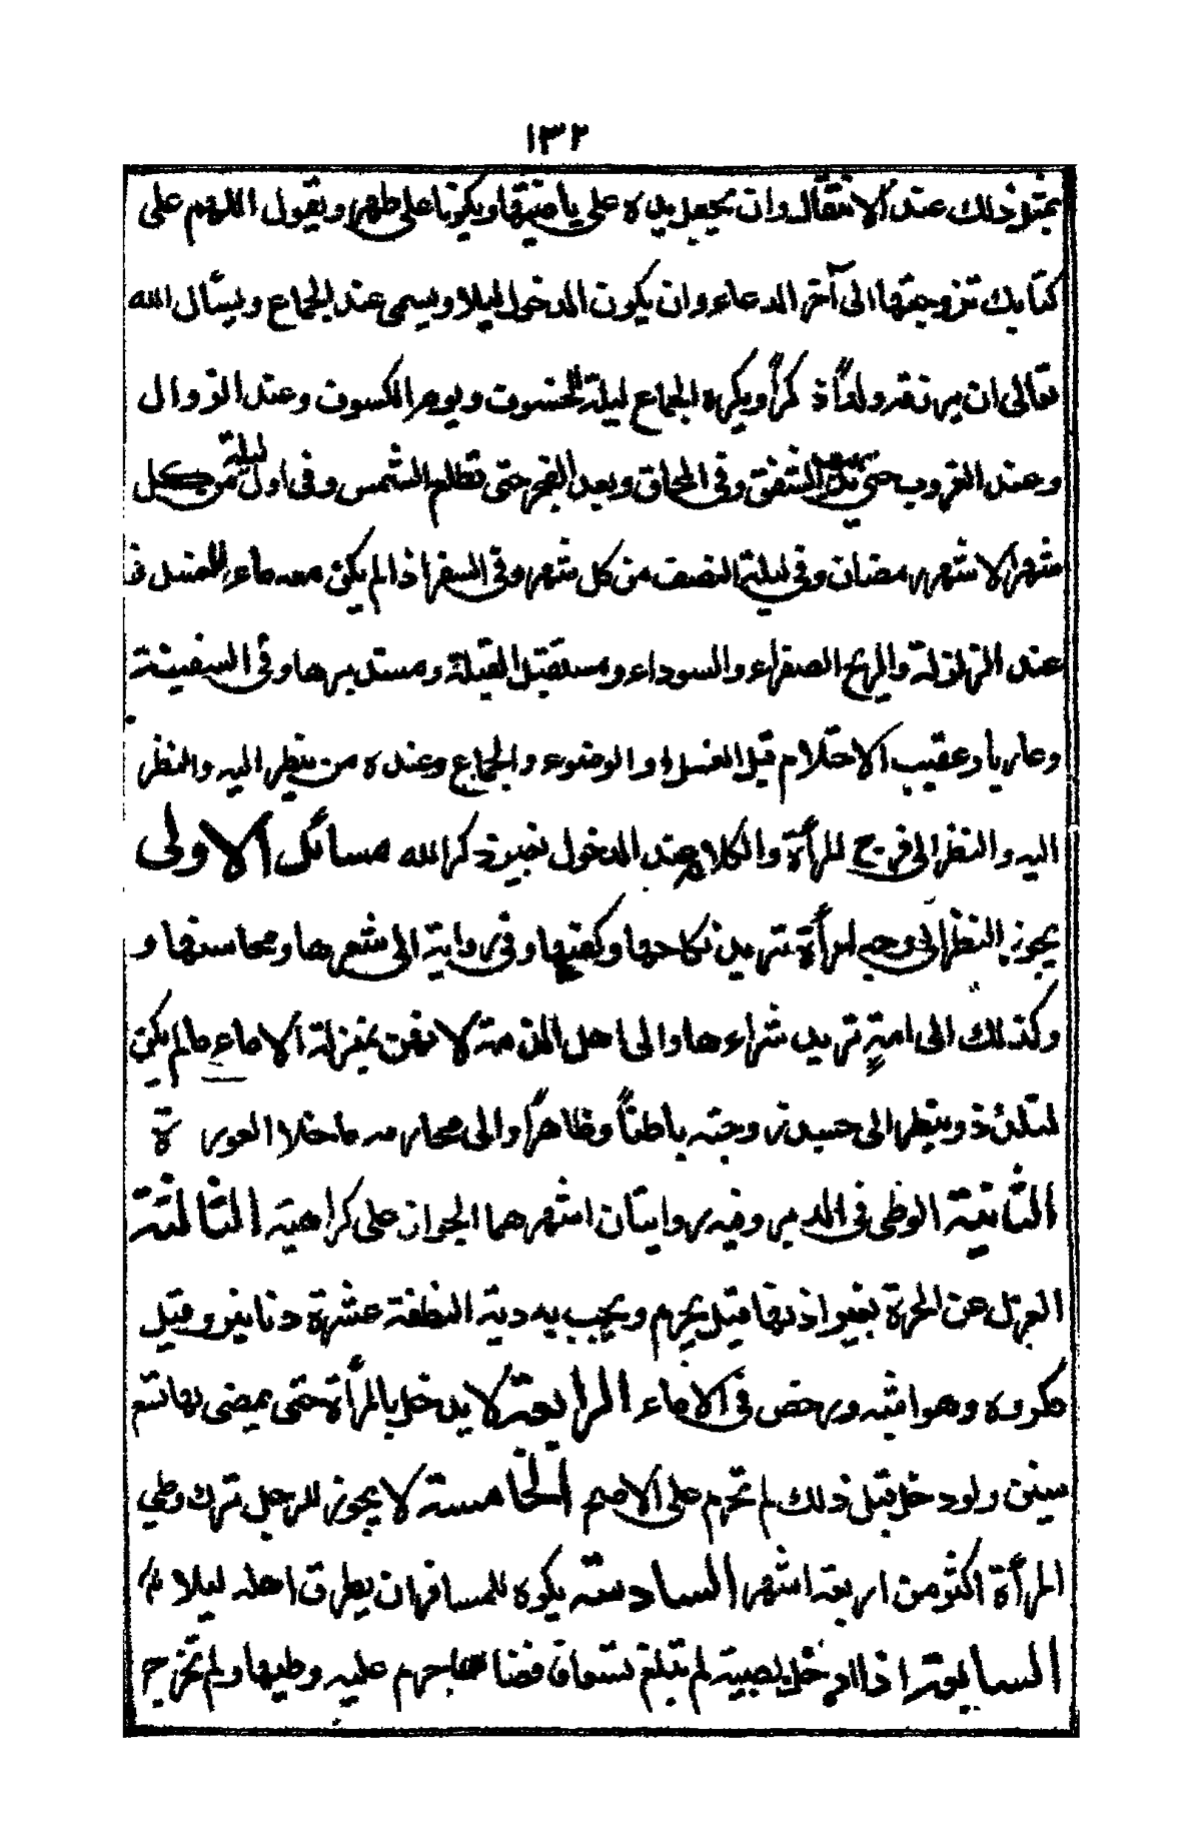 ١٣٢
بمثل ذلك عند الانتقال وان يجعل يده على ناصيتها ويكونا على طهر ويقول اللهم على
كتابك تزوجتها الى آخر الدعاء وان يكون الدخول ليلا ويسمى عند الجماع ويسأل الله
تعالى ان يرزقه ولداً ذكراً ويكره الجماع ليلة الخسوف ويوم الكسوف وعند الزوال
وعند الغروب حتى يذهب الشفق وفى المحاق وبعد الفجر حتى تطلع الشمس وفى اول ليلة من كل
شهر الا شهر رمضان وفى ليلة النصف من كل شهر وفى السفر اذا لم يكن معه ماء للغسل و
عند الزلزلة والريح الصفراء والسوداء ومستقبل القبلة ومستدبرها وفى السفينة
وعاريا وعقيب الاحتلام قبل الغسل او الوضوء والجماع وعنده من ينظر اليه والنظر
اليه والنظر الى فرج المرأة والكلام عند الدخول بغير ذكر الله مسائل الاولى
يجوز النظر الى وجه امرأة تريد نكاحها وكفيها وفى رواية الى شعرها ومحاسنها و
وكذلك الى امة تريد شراءها والى اهل الذمة لانهن بمنزلة الاماء ما لم يكن
لتلذذ وينظر الى جسد زوجته باطناً وظاهراً والى محارمه ما خلا العورة
الثانية الوطى فى الدبر وفيه روايتان اشهرهما الجواز على كراهية الثالثة
العزل عن الحرة بغير اذنها قيل يحرم ويجب به دية النطفة عشرة دنانير وقيل
مكروه وهو اشبه ورخص فى الاماء الرابعة لا يدخل بالمرأة حتى يمضى لها تسع
سنين ولو دخل قبل ذلك لم تحرم على الاصح الخامسة لا يجوز للرجل ترك وطي
المرأة اكثر من اربعة اشهر السادسة يكره للمسافر ان يطرق اهله ليلا
السابعة اذا دخل بصبية لم تبلغ تسعاً فافضاها حرم عليه وطيها ولم تخرج